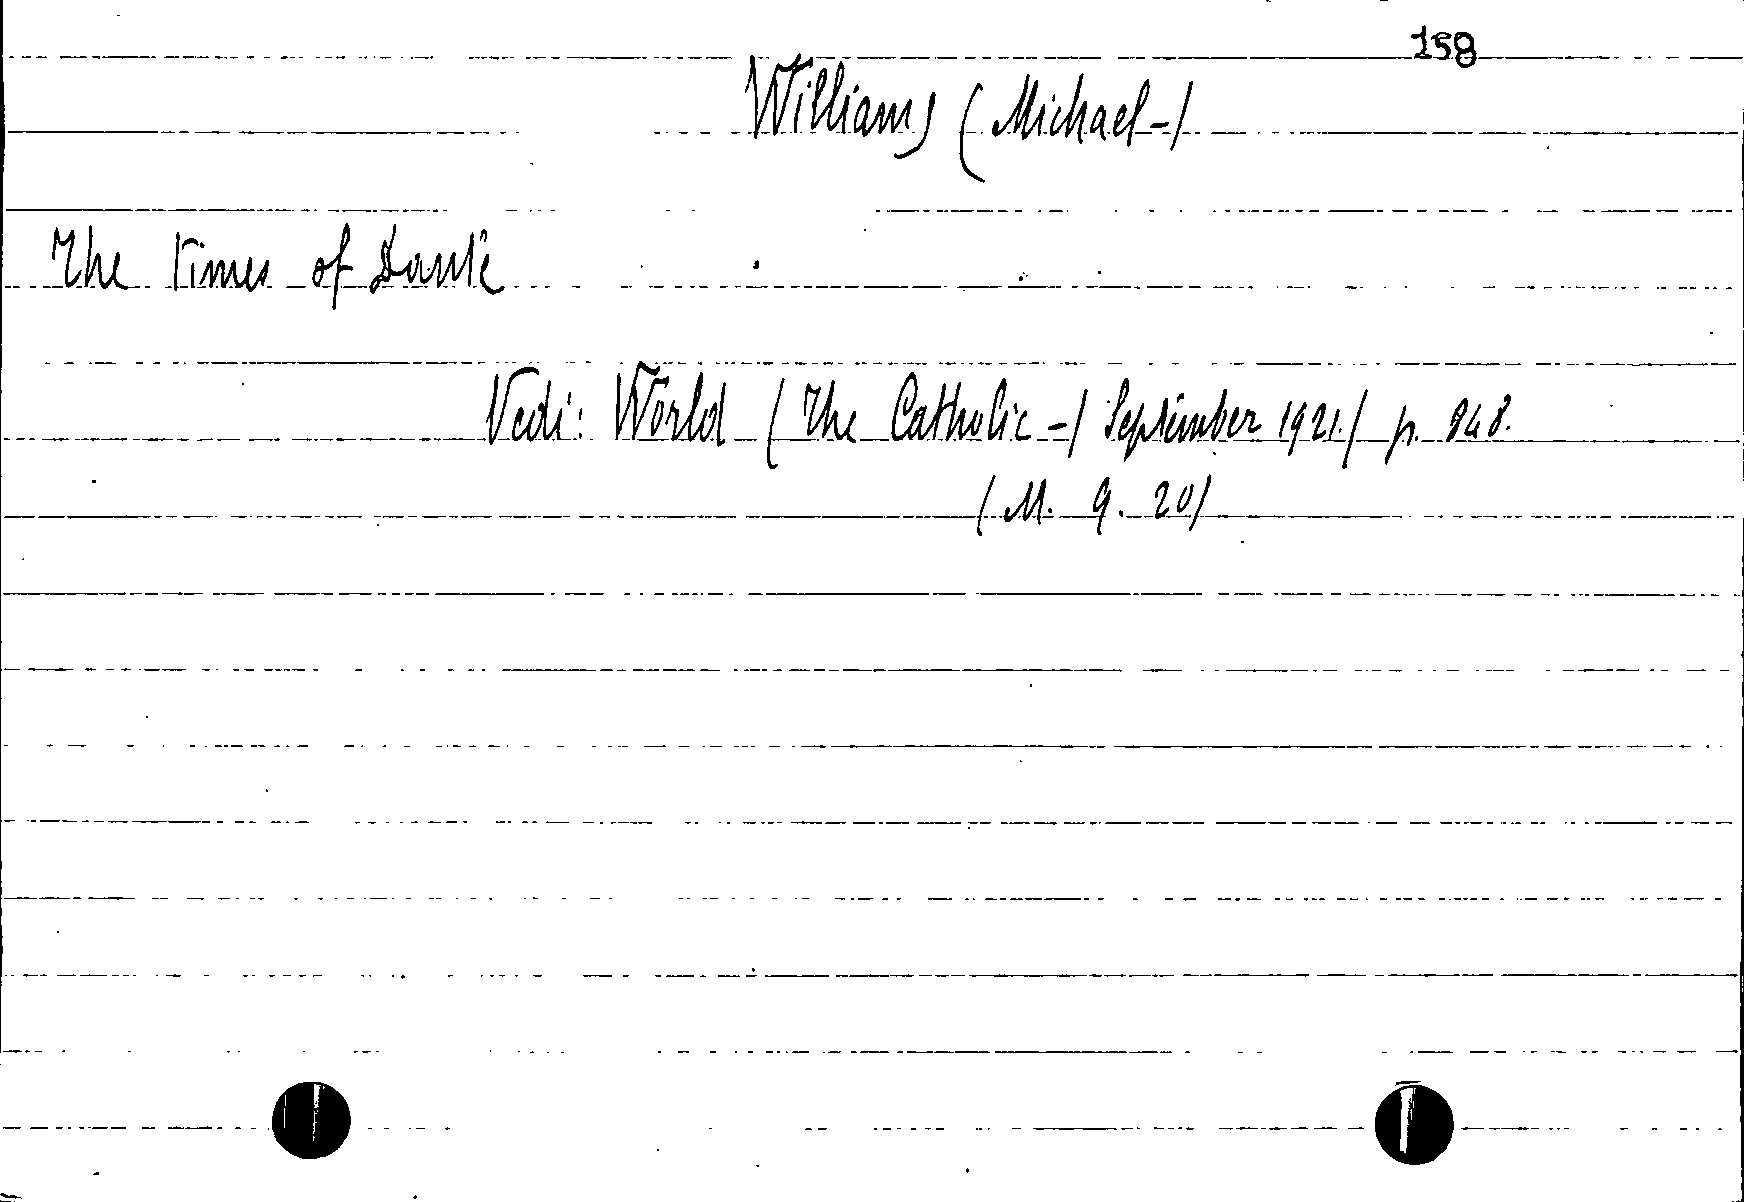 158
Williams (Michael-)
The times of Dante
Vedi: World (The Catholic-) September 1921) p. 848.
(M. 9. 20)